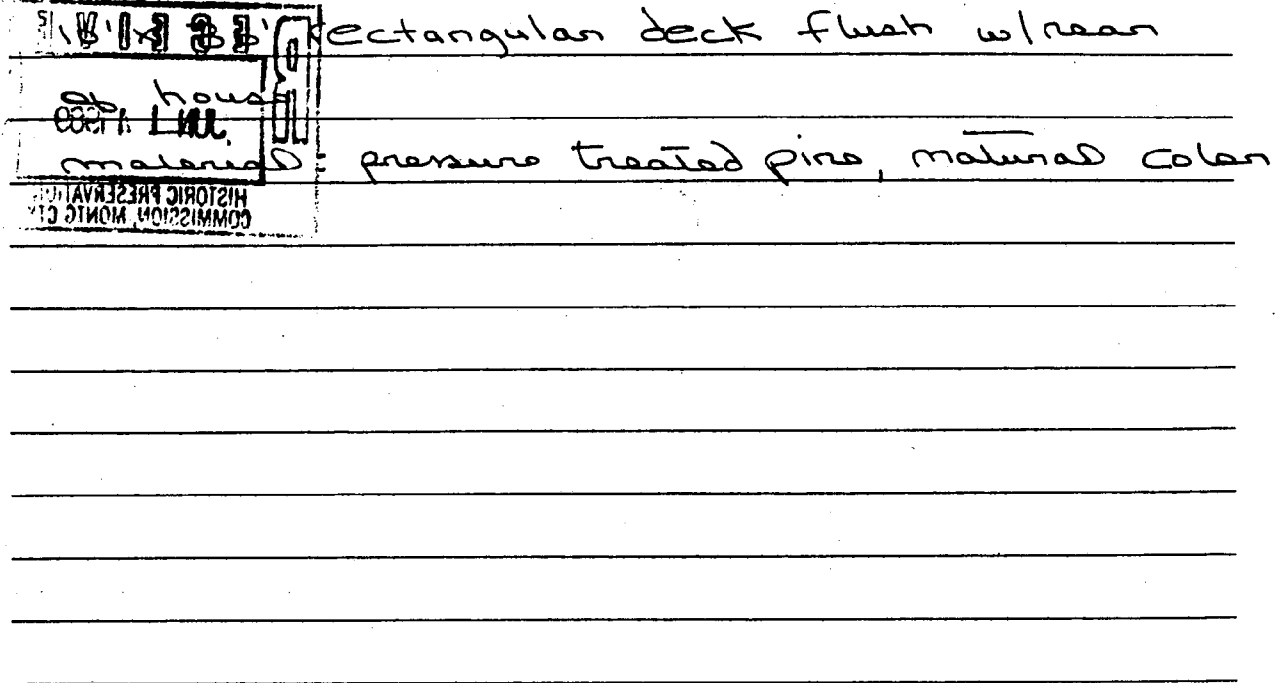 Rectangular deck flush w/rear
of house
material: pressure treated pine, natural color
HISTORIC PRESERVATION
COMMISSION, MONTG CTY